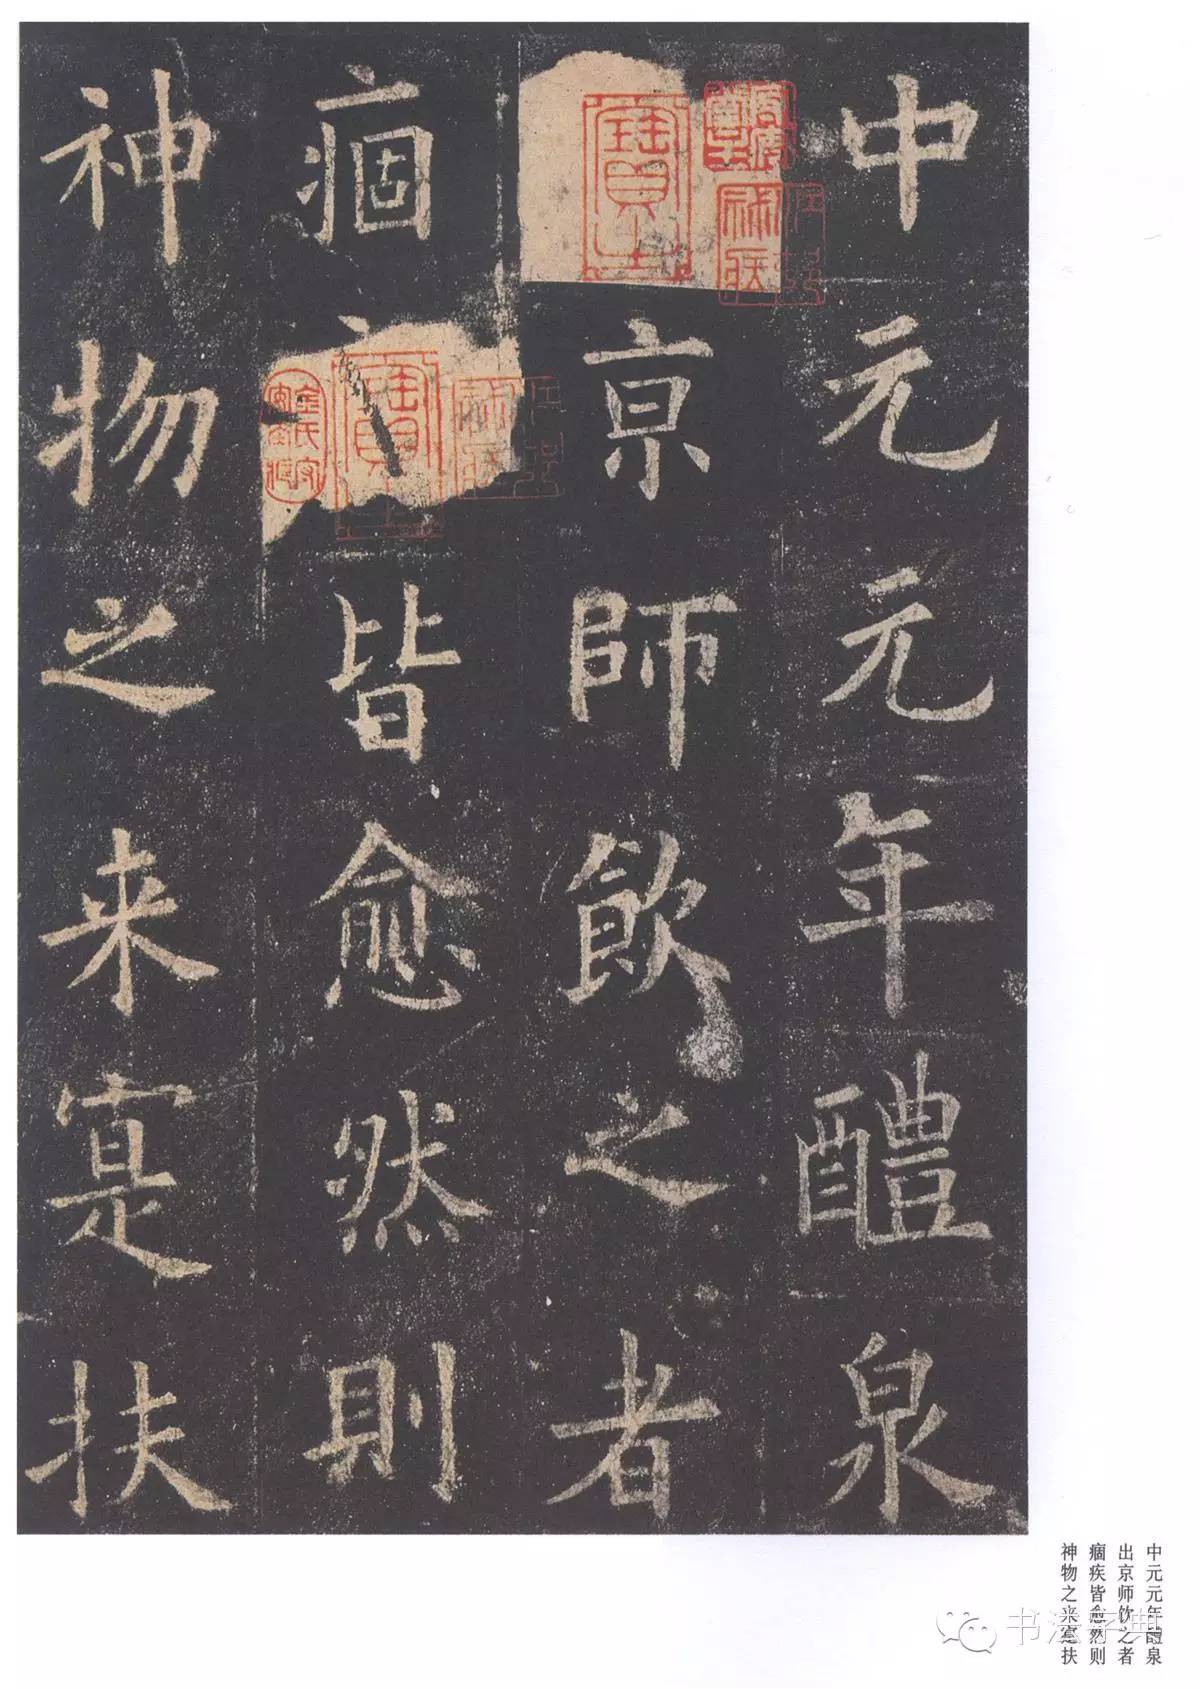 中元元年醴泉
京師飲之者
痼皆愈然則
神物之来寔扶
中元元年醴泉
出京师饮之者
痼疾皆愈然则
神物之来寔扶
书法字典